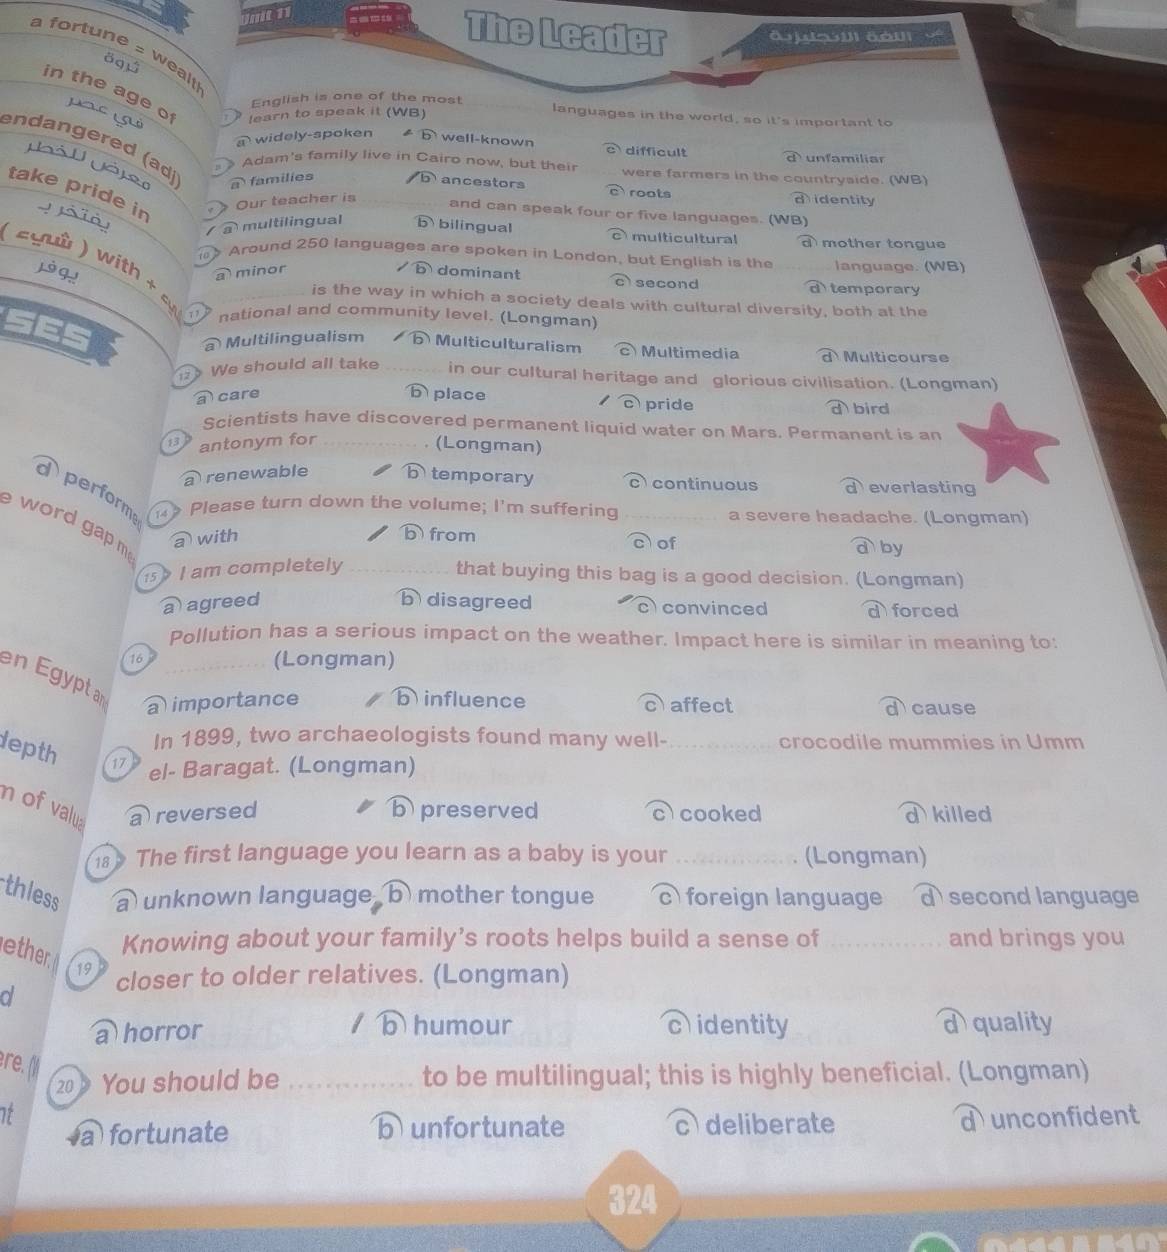 Unit 11
The Leader
اللغة الانجليزية
a fortune = wealth
ثروة
in the age of
endangered (adj)
take pride in
) with +
SES
7 English is one of the most ........ languages in the world, so it's important to
learn to speak it (WB)
a widely-spoken b well-known c difficult d unfamiliar
8 Adam's family live in Cairo now, but their ........ were farmers in the countryside. (WB)
a families b ancestors c roots d identity
9 Our teacher is ........ and can speak four or five languages. (WB)
a multilingual b bilingual c multicultural d mother tongue
10 Around 250 languages are spoken in London, but English is the ........ language. (WB)
a minor b dominant c second d temporary
11 ........ is the way in which a society deals with cultural diversity, both at the
national and community level. (Longman)
a Multilingualism b Multiculturalism c Multimedia d Multicourse
12 We should all take ........ in our cultural heritage and glorious civilisation. (Longman)
a care b place c pride d bird
13 Scientists have discovered permanent liquid water on Mars. Permanent is an
antonym for ............ . (Longman)
a renewable b temporary c continuous d everlasting
d performe
14 Please turn down the volume; I'm suffering ............ a severe headache. (Longman)
a with b from c of d by
e word gap me
15 I am completely ............ that buying this bag is a good decision. (Longman)
a agreed b disagreed c convinced d forced
16 Pollution has a serious impact on the weather. Impact here is similar in meaning to:
............ (Longman)
a importance b influence c affect d cause
en Egypt an
17 In 1899, two archaeologists found many well-............ crocodile mummies in Umm
el- Baragat. (Longman)
a reversed b preserved c cooked d killed
depth
n of valua
18 The first language you learn as a baby is your ............. (Longman)
a unknown language b mother tongue c foreign language d second language
thless
19 Knowing about your family's roots helps build a sense of ............ and brings you
closer to older relatives. (Longman)
a horror b humour c identity d quality
ether.
d
20 You should be ............ to be multilingual; this is highly beneficial. (Longman)
a fortunate b unfortunate c deliberate d unconfident
ere.
nt
324